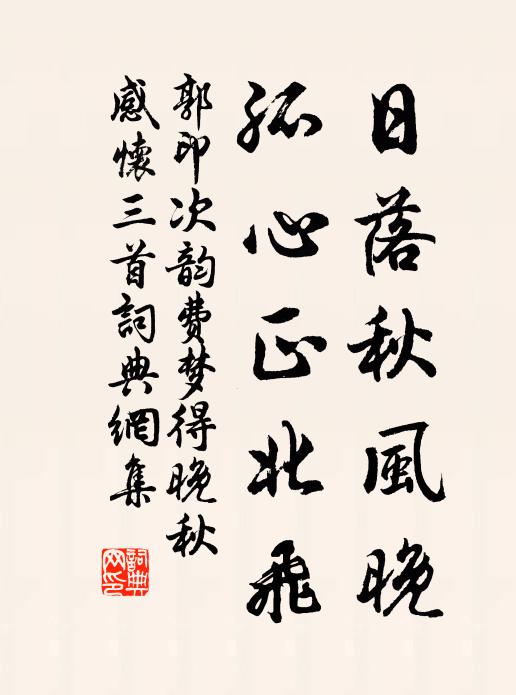 日落秋風晚
孤心正北飛
郭印次韵費梦得晚秋
感懷三首詞典網集
詞典
网印